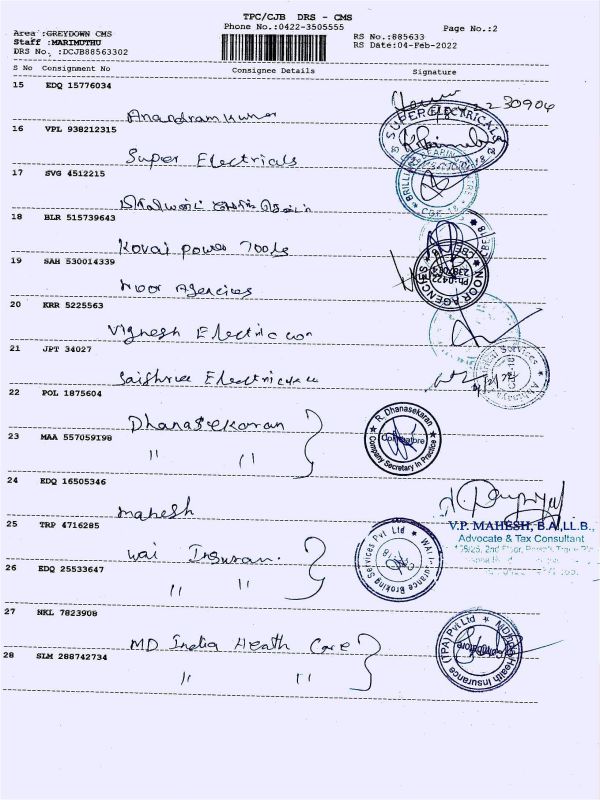 TPC/CJB DRS - CMS
Phone No.:0422-3505555
Page No.:2
Area :GREYDOWN CMS
Staff :MARIMUTHU
DRS No. :DCJB88563302
RS No.:885633
RS Date:04-Feb-2022
S No Consignment No Consignee Details Signature
15 EDQ 15776034
Anandramkumar
230904
16 VPL 938212315
Super Electricals
SUPER ELECTRICALS
17 SVG 4512215
18 BLR 515739643
Kovai power Tools
19 SAH 530014339
Noor Agencies
NOOR AGENCIES
20 KRR 5225563
Vignesh Electric
21 JPT 34027
Saishree
22 POL 1875604
Dhanasekaran
R. Dhanasekaran
Coimbatore
Company Secretary in Practice
23 MAA 557059198
" "
24 EDQ 16505346
mahesh
V.P. MAHESH, B.A.,LL.B.,
Advocate & Tax Consultant
25 TRP 4716285
Wai Insuran.
WAI Insurance Broking Services Pvt Ltd
26 EDQ 25533647
" "
27 NKL 7823908
MD India Heath Care
MDIndia Health Insurance (TPA) Pvt Ltd
28 SLM 288742734
" "